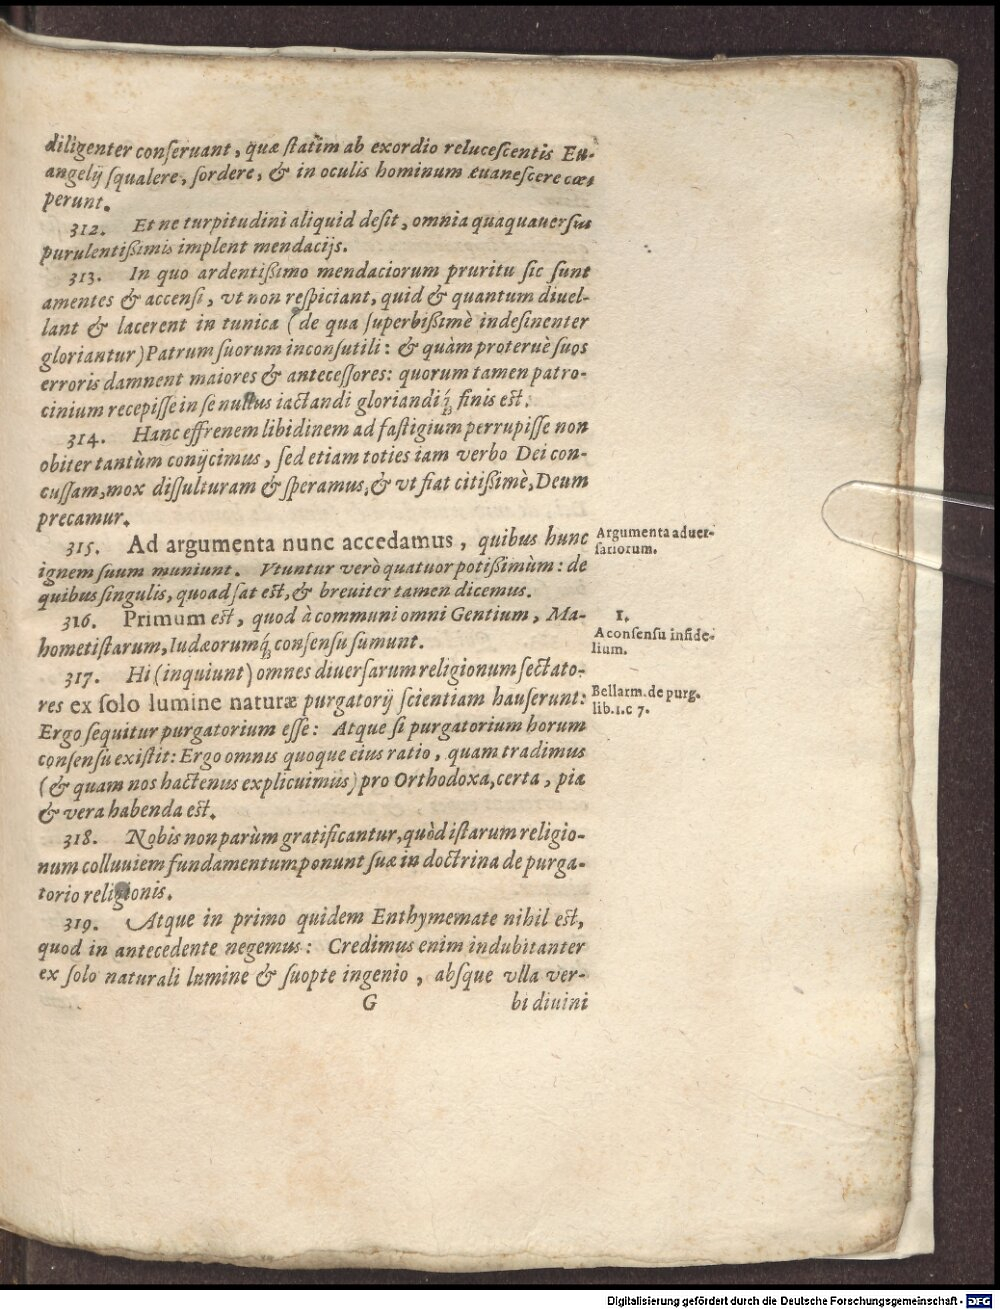 diligenter conſeruant, quæ ſtatim ab exordio relucеſcentis Eu-
angelij ſqualere, ſordere, & in oculis hominum euaneſcere cœ-
perunt.
312. Et ne turpitudini aliquid deſit, omnia quaquauerſus
purulentißimis implent mendacijs.
313. In quo ardentißimo mendaciorum pruritu ſic ſunt
amentes & accenſi, vt non reſpiciant, quid & quantum diuel-
lant & lacerent in tunica (de qua ſuperbißimè indeſinenter
gloriantur) Patrum ſuorum inconſutili: & quàm proteruè ſuos
erroris damnent maiores & anteceſſores: quorum tamen patro-
cinium recepiſſe in ſe nullus iactandi gloriandiq́; finis est.
314. Hanc effrenem libidinem ad faſtigium perrupiſſe non
obiter tantùm conijcimus, ſed etiam toties iam verbo Dei con-
cuſſam, mox diſſulturam & ſperamus, & vt fiat citißimè, Deum
precamur.
315. Ad argumenta nunc accedamus, quibus hunc
ignem ſuum muniunt. Vtuntur verò quatuor potißimùm: de
quibus ſingulis, quoad ſat est, & breuiter tamen dicemus.
Argumenta aduer-
ſariorum.
316. Primum est, quod à communi omni Gentium, Ma-
hometiſtarum, Iudæorumq́; conſenſu ſumunt.
1.
A conſenſu infide-
lium.
317. Hi (inquiunt) omnes diuerſarum religionum ſectato-
res ex ſolo lumine naturæ purgatorij ſcientiam hauſerunt:
Ergo ſequitur purgatorium eſſe: Atque ſi purgatorium horum
conſenſu exiſtit: Ergo omnis quoque eius ratio, quam tradimus
(& quam nos hactenus explicuimus) pro Orthodoxa, certa, pia
& vera habenda est.
Bellarm. de purg.
lib. 1. c 7.
318. Nobis non parùm gratificantur, quòd iſtarum religio-
num colluuiem fundamentum ponunt ſuæ in doctrina de purga-
torio religionis.
319. Atque in primo quidem Enthymemate nihil est,
quod in antecedente negemus: Credimus enim indubitanter
ex ſolo naturali lumine & ſuopte ingenio, abſque vlla ver-
G bi diuini
Digitalisierung gefördert durch die Deutsche Forschungsgemeinschaft - DFG